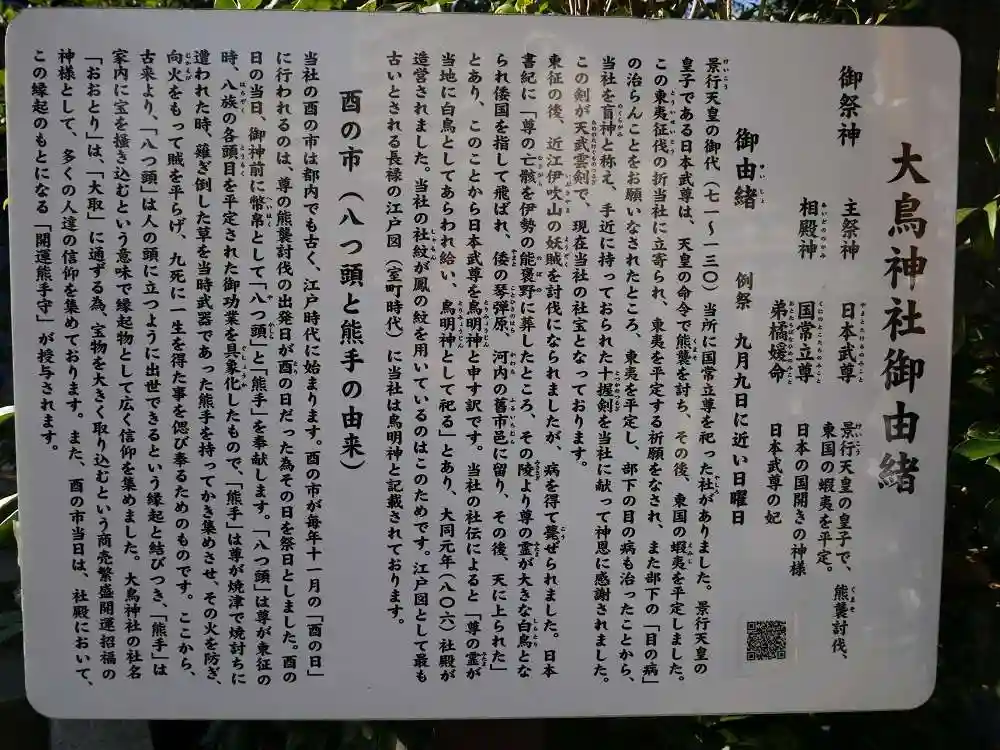 大鳥神社御由緒
御祭神
主祭神 日本武尊 景行天皇の皇子で、熊襲討伐、
東国の蝦夷を平定。
相殿神 国常立尊 日本の国開きの神様
弟橘媛命 日本武尊の妃
御由緒 例祭 九月九日に近い日曜日
景行天皇の御代(七一〜一三〇)当所に国常立尊を祀った社がありました。景行天皇の
皇子である日本武尊は、天皇の命令で熊襲を討ち、その後、東国の蝦夷を平定しました。
この東夷征伐の折当社に立寄られ、東夷を平定する祈願をなされ、また部下の「目の病」
の治らんことをお願いなされたところ、東夷を平定し、部下の目の病も治ったことから、
当社を盲神と称え、手近に持っておられた十握剣を当社に献って神恩に感謝されました。
この剣が天武雲剣で、現在当社の社宝となっております。
東征の後、近江伊吹山の妖賊を討伐になられましたが、病を得て薨ぜられました。日本
書紀に「尊の亡骸を伊勢の能褒野に葬したところ、その陵より尊の霊が大きな白鳥とな
られ倭国を指して飛ばれ、倭の琴弾原、河内の舊市邑に留り、その後、天に上られた」
とあり、このことから日本武尊を鳥明神と申す訳です。当社の社伝によると「尊の霊が
当地に白鳥としてあらわれ給い、鳥明神として祀る」とあり、大同元年(八〇六)社殿が
造営されました。当社の社紋が鳳の紋を用いているのはこのためです。江戸図として最も
古いとされる長禄の江戸図(室町時代)に当社は鳥明神と記載されております。
酉の市(八つ頭と熊手の由来)
当社の酉の市は都内でも古く、江戸時代に始まります。酉の市が毎年十一月の「酉の日」
に行われるのは、尊の熊襲討伐の出発日が酉の日だった為その日を祭日としました。酉の
日の当日、御神前に幣帛として「八つ頭」と「熊手」を奉献します。「八つ頭」は尊が東征の
時、八族の各頭目を平定された御功業を具象化したもので、「熊手」は尊が焼津で焼討ちに
遭われた時、薙ぎ倒した草を当時武器であった熊手を持ってかき集めさせ、その火を防ぎ、
向火をもって賊を平らげ、九死に一生を得た事を偲び奉るためのものです。ここから、
古来より、「八つ頭」は人の頭に立つように出世できるという縁起と結びつき、「熊手」は
家内に宝を掻き込むという意味で縁起物として広く信仰を集めました。大鳥神社の社名
「おおとり」は、「大取」に通ずる為、宝物を大きく取り込むという商売繁盛開運招福の
神様として、多くの人達の信仰を集めております。また、酉の市当日は、社殿において、
この縁起のもとになる「開運熊手守」が授与されます。